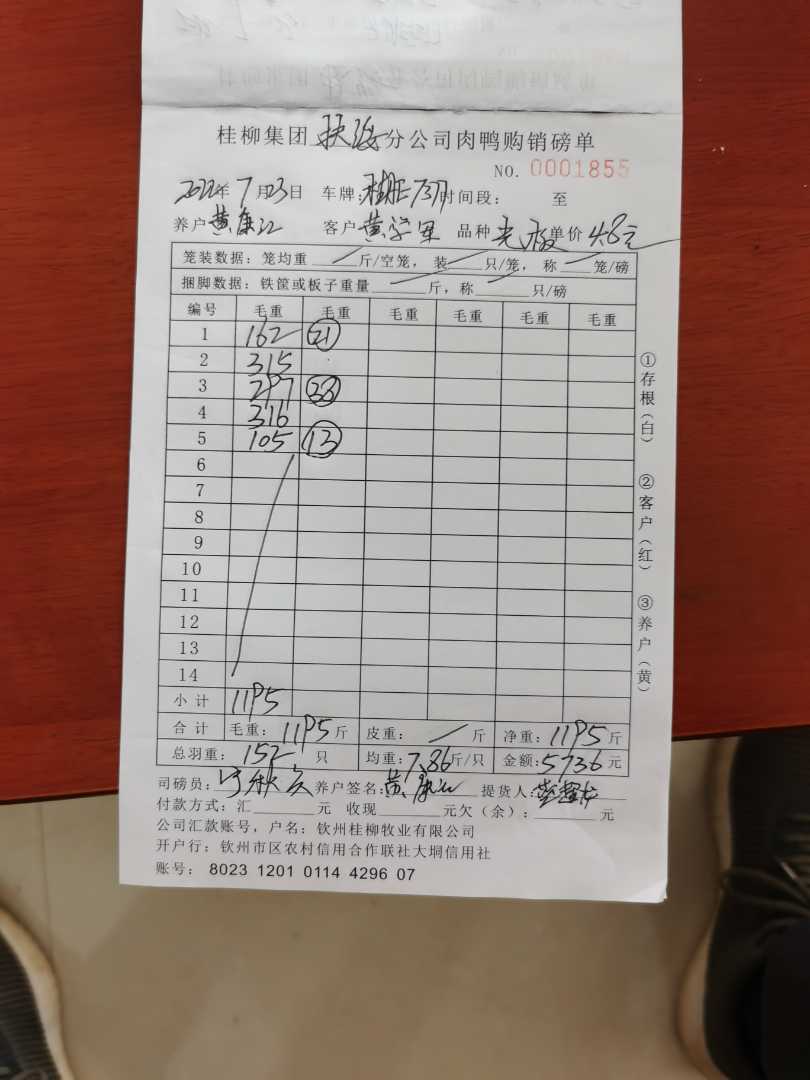 桂柳集团 分公司肉鸭购销磅单
NO. 0001855
2022年7月23日 车牌: 737 时间段: 至
养户 黄康江 客户 黄学军 品种 单价 4.8元
笼装数据: 笼均重 斤/空笼, 装 只/笼, 称 笼/磅
捆脚数据: 铁筐或板子重量 斤, 称 只/磅
编号 毛重 毛重 毛重 毛重 毛重 毛重
1 162 21
2 315
3 297 33
4 316
5 105 13
6
7
8
9
10
11
12
13
14
小计 1195
合计 毛重: 1195 斤 皮重: 斤 净重: 1195 斤
总羽重: 152 只 均重: 7.86 斤/只 金额: 5736 元
司磅员: 养户签名: 黄康江 提货人:
付款方式: 汇 元 收现 元欠(余): 元
公司汇款账号, 户名: 钦州桂柳牧业有限公司
开户行: 钦州市区农村信用合作联社大垌信用社
账号: 8023 1201 0114 4296 07
①存根(白) ②客户(红) ③养户(黄)